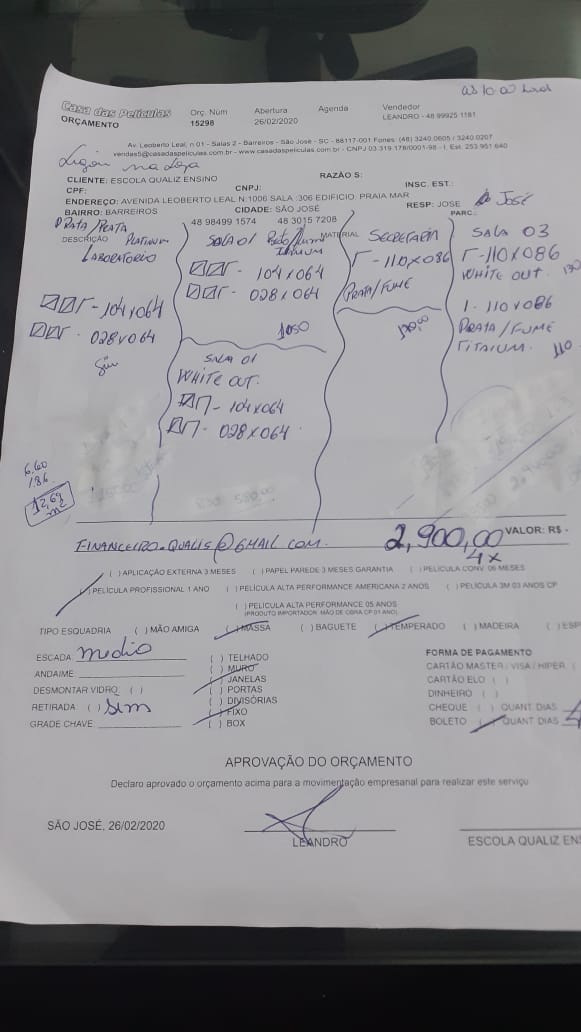 Casa das Películas
ORÇAMENTO
Orç. Num
15298
Abertura
26/02/2020
Agenda
Vendedor
LEANDRO - 48 99925 1181
Av. Leoberto Leal, n 01 - Salas 2 - Barreiros - São José - SC - 88117-001 Fones: (48) 3240.0605 / 3240.0207
vendas5@casadaspeliculas.com.br - www.casadaspeliculas.com.br - CNPJ 03.319.178/0001-98 - I. Est. 253.951.640
Ligou na Loja
RAZÃO S:
CLIENTE: ESCOLA QUALIZ ENSINO
CPF:
CNPJ:
INSC. EST.:
ENDEREÇO: AVENIDA LEOBERTO LEAL N:1006 SALA :306 EDIFICIO. PRAIA MAR
BAIRRO: BARREIROS
CIDADE: SÃO JOSÉ
RESP: JOSE
José
48 98499 1574
48 3015 7208
PARC.:
PRATA/PRATA
DESCRIÇÃO
PLATINUM
LABORATORIO
104x064
028x064
Sim
SALA 01
104x064
028x064
1050
SALA 01
WHITE OUT.
104x064
028x064
MATERIAL
SECRETARIA
110x086
PRATA/FUMÊ
120,00
SALA 03
110x086
WHITE OUT.
130
1. 110x086
PRATA/FUMÊ
TITAIUM.
110
6.60
1.86
12,69
m2
FINANCEIRO.QUALIS@GMAIL.COM.
2,900,00
VALOR: R$ -
4x
( ) APLICAÇÃO EXTERNA 3 MESES ( ) PAPEL PAREDE 3 MESES GARANTIA ( ) PELÍCULA CONV. 06 MESES
( ) PELÍCULA PROFISSIONAL 1 ANO ( ) PELÍCULA ALTA PERFORMANCE AMERICANA 2 ANOS ( ) PELÍCULA 3M 03 ANOS CP
( ) PELÍCULA ALTA PERFORMANCE 05 ANOS
(PRODUTO IMPORTADOR. MÃO DE OBRA CP 01 ANO)
TIPO ESQUADRIA ( ) MÃO AMIGA ( ) MASSA ( ) BAGUETE ( ) TEMPERADO ( ) MADEIRA ( ) ESP
ESCADA: medio
ANDAIME:
DESMONTAR VIDRO: ( )
RETIRADA: ( ) Sim
GRADE CHAVE:
( ) TELHADO
( ) MURO
( ) JANELAS
( ) PORTAS
( ) DIVISÓRIAS
( ) FIXO
( ) BOX
FORMA DE PAGAMENTO
CARTÃO MASTER / VISA / HIPER (
CARTÃO ELO ( )
DINHEIRO ( )
CHEQUE ( ) QUANT DIAS
BOLETO ( ) QUANT DIAS 4
APROVAÇÃO DO ORÇAMENTO
Declaro aprovado o orçamento acima para a movimentação empresarial para realizar este serviço
SÃO JOSÉ, 26/02/2020
LEANDRO
ESCOLA QUALIZ ENS